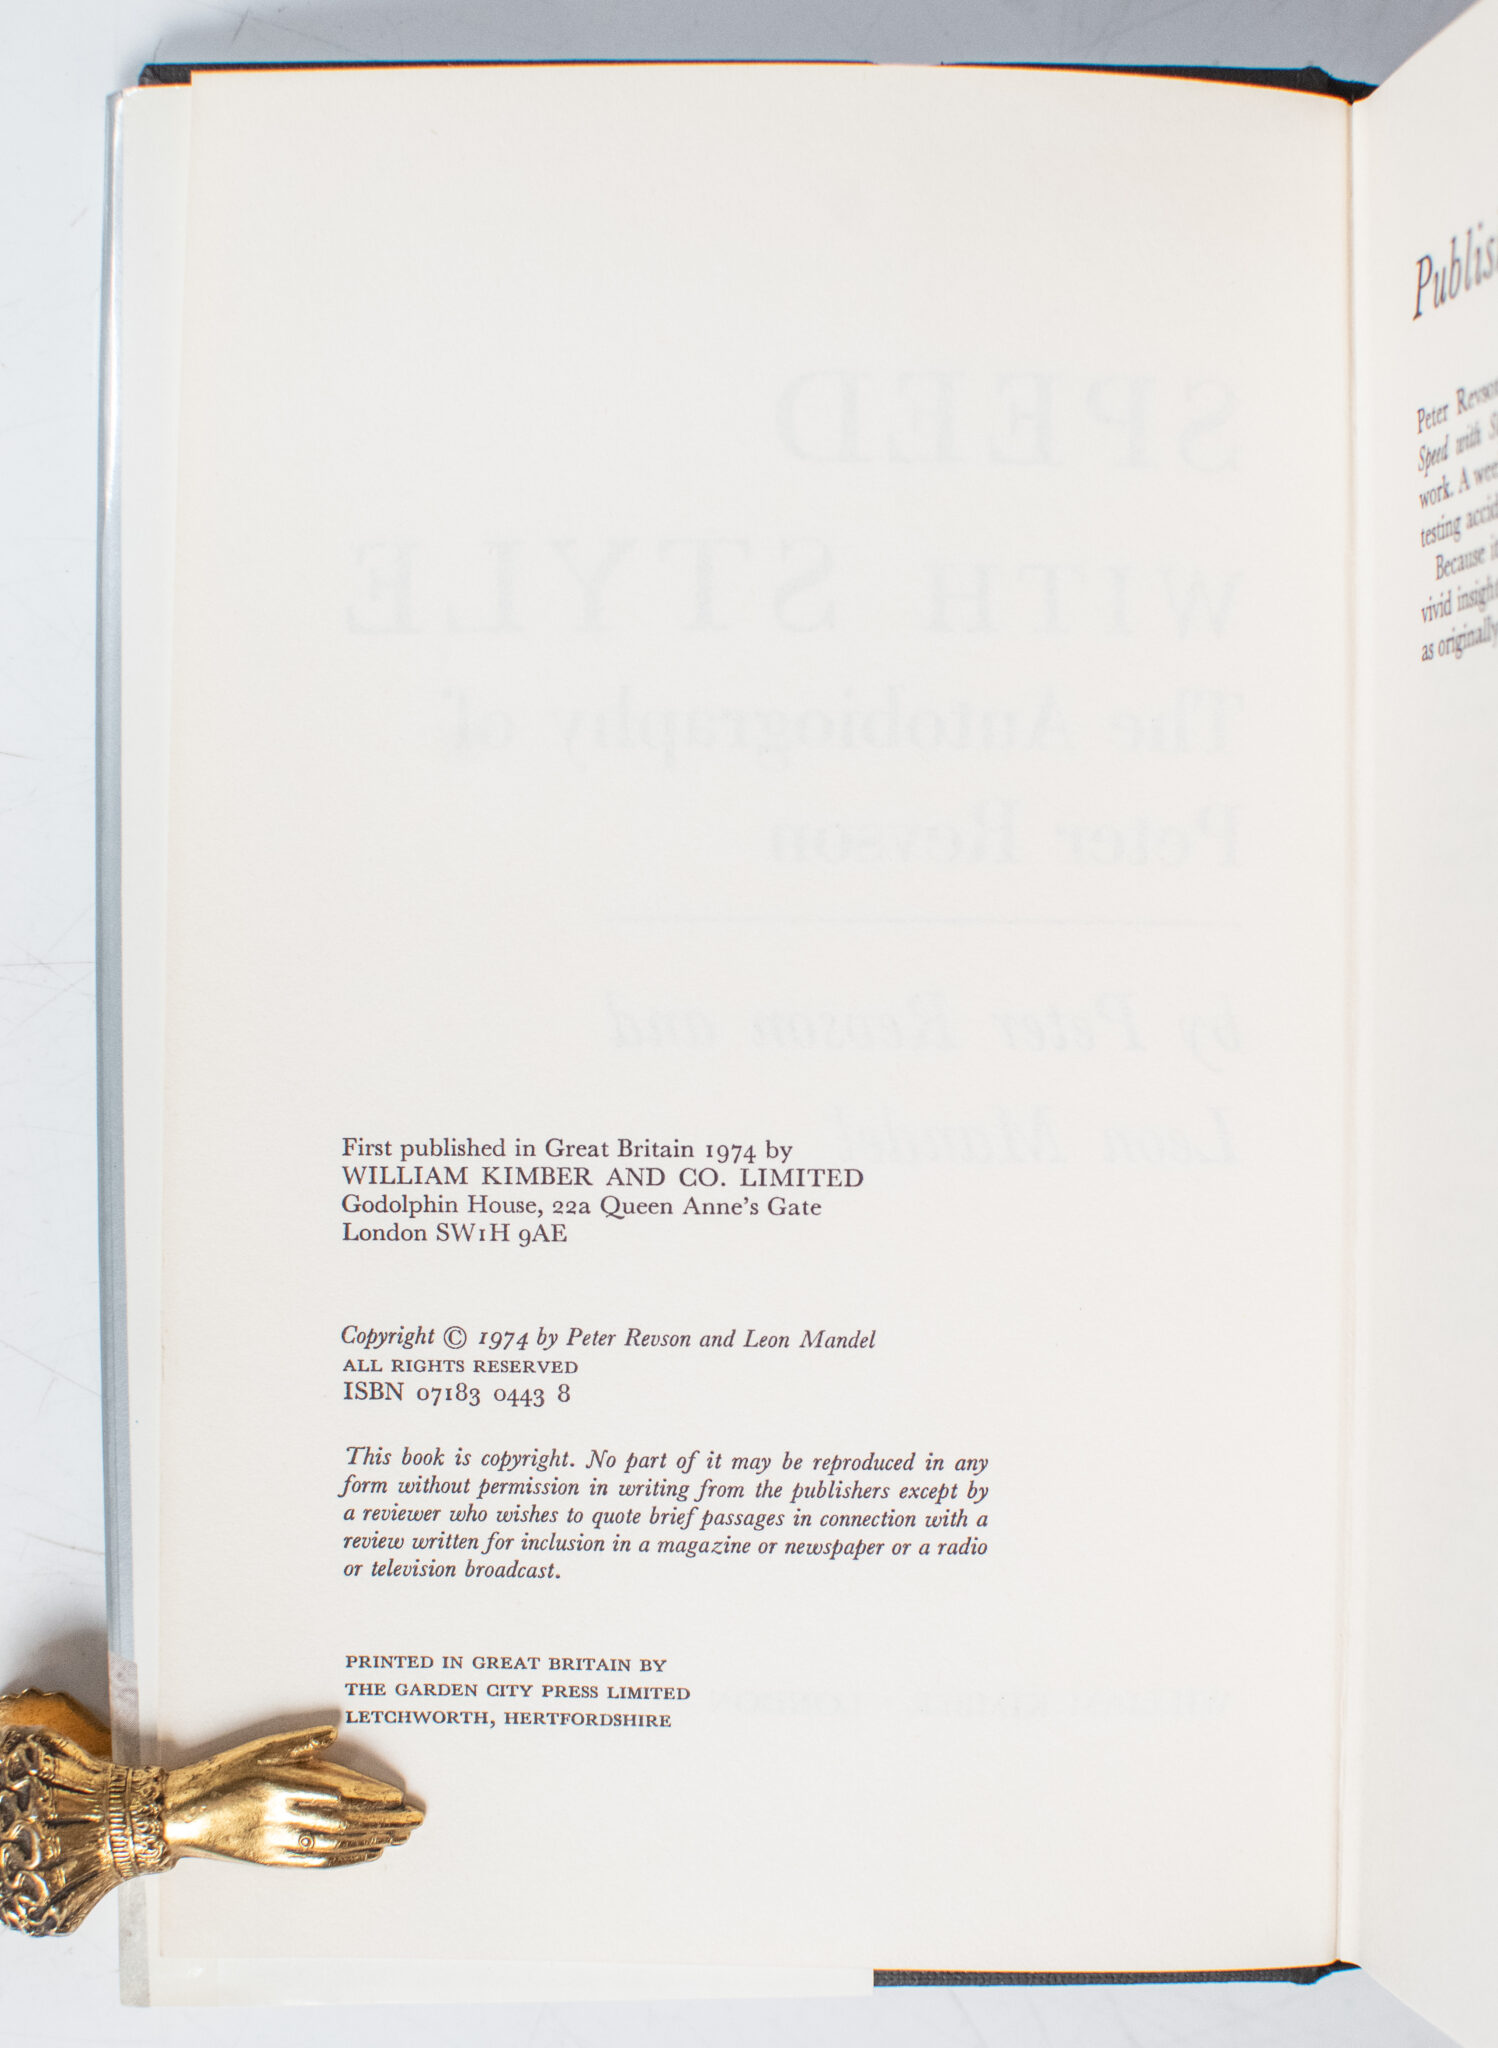 First published in Great Britain 1974 by
WILLIAM KIMBER AND CO. LIMITED
Godolphin House, 22a Queen Anne's Gate
London SW1H 9AE
Copyright © 1974 by Peter Revson and Leon Mandel
ALL RIGHTS RESERVED
ISBN 07183 0443 8
This book is copyright. No part of it may be reproduced in any
form without permission in writing from the publishers except by
a reviewer who wishes to quote brief passages in connection with a
review written for inclusion in a magazine or newspaper or a radio
or television broadcast.
PRINTED IN GREAT BRITAIN BY
THE GARDEN CITY PRESS LIMITED
LETCHWORTH, HERTFORDSHIRE
SPEED
WITH STYLE
The Autobiography of
Peter Revson
by Peter Revson and
Leon Mandel
Peter
Speed with
work. A
testing
Because
vivid
as originally